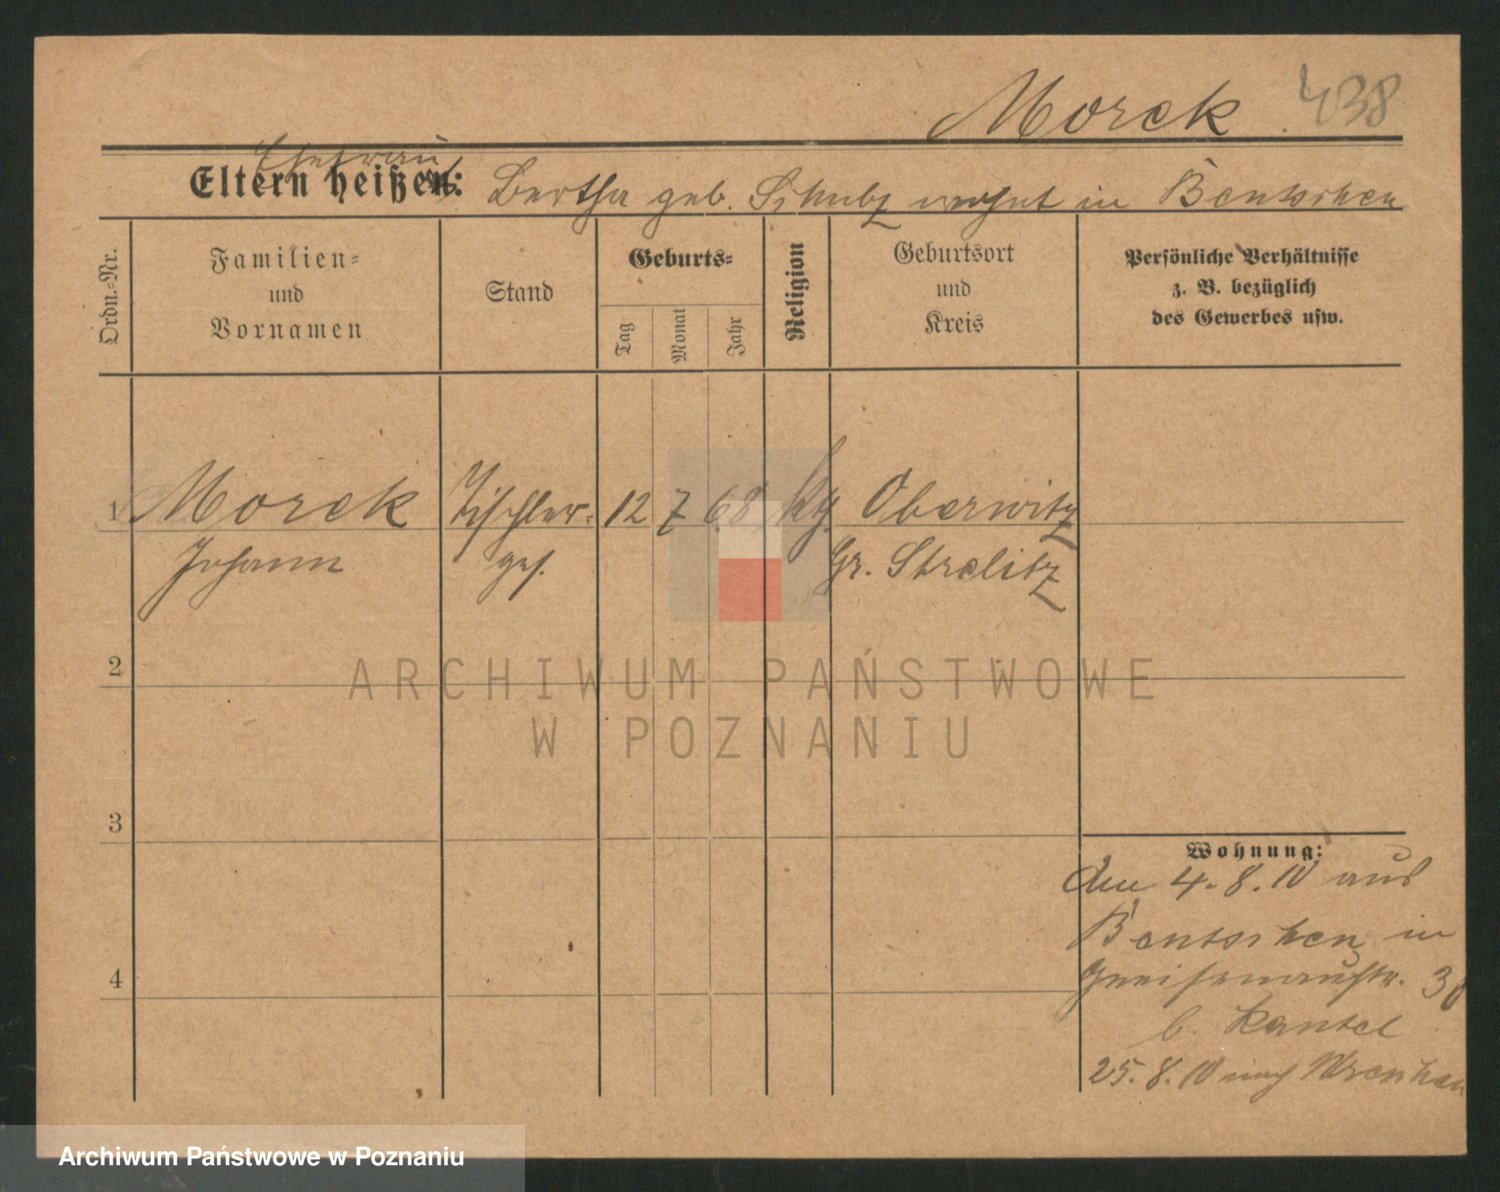 Morek 438
Ehefrau
Eltern heißen: Bertha geb. Schulz wohnt in Bentschen
Ordn.-Nr.
Familien-
und
Vornamen
Stand
Geburts-
Tag
Monat
Jahr
Religion
Geburtsort
und
Kreis
Persönliche Verhältnisse
z. B. bezüglich
des Gewerbes usw.
1 Morek Tischler- 12 7 68 kth. Oberwitz
Johann ges. Gr. Strelitz
2
3
4
Wohnung:
den 4.8.10 aus
Bentschen in
Gneisenaustr. 38
b. Kantel
25.8.10 nach
ARCHIWUM PAŃSTWOWE
W POZNANIU
Archiwum Państwowe w Poznaniu